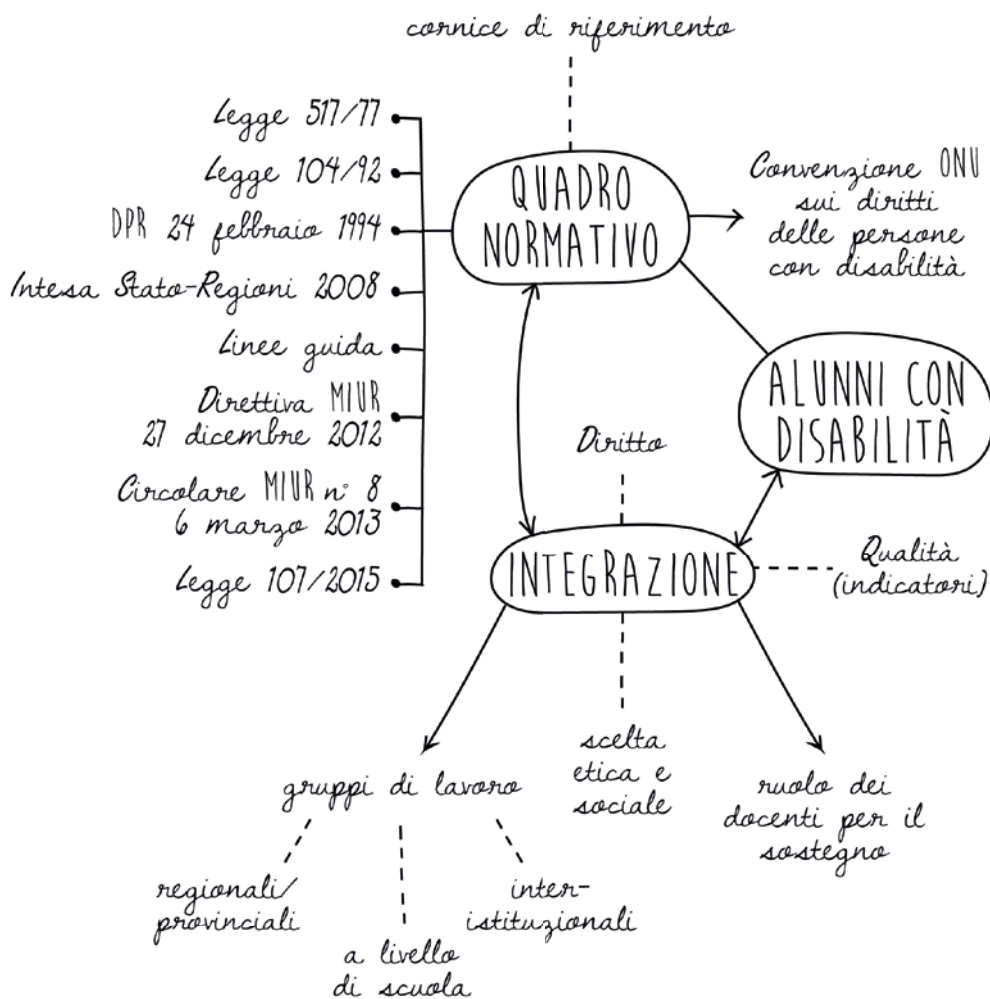 cornice di riferimento
Legge 517/77
Legge 104/92
DPR 24 febbraio 1994
Intesa Stato-Regioni 2008
Linee guida
Direttiva MIUR
27 dicembre 2012
Circolare MIUR n° 8
6 marzo 2013
Legge 107/2015
QUADRO
NORMATIVO
Convenzione ONU
sui diritti
delle persone
con disabilità
ALUNNI CON
DISABILITÀ
Diritto
INTEGRAZIONE
Qualità
(indicatori)
gruppi di lavoro
regionali/
provinciali
a livello
di scuola
inter-
istituzionali
scelta
etica e
sociale
ruolo dei
docenti per il
sostegno